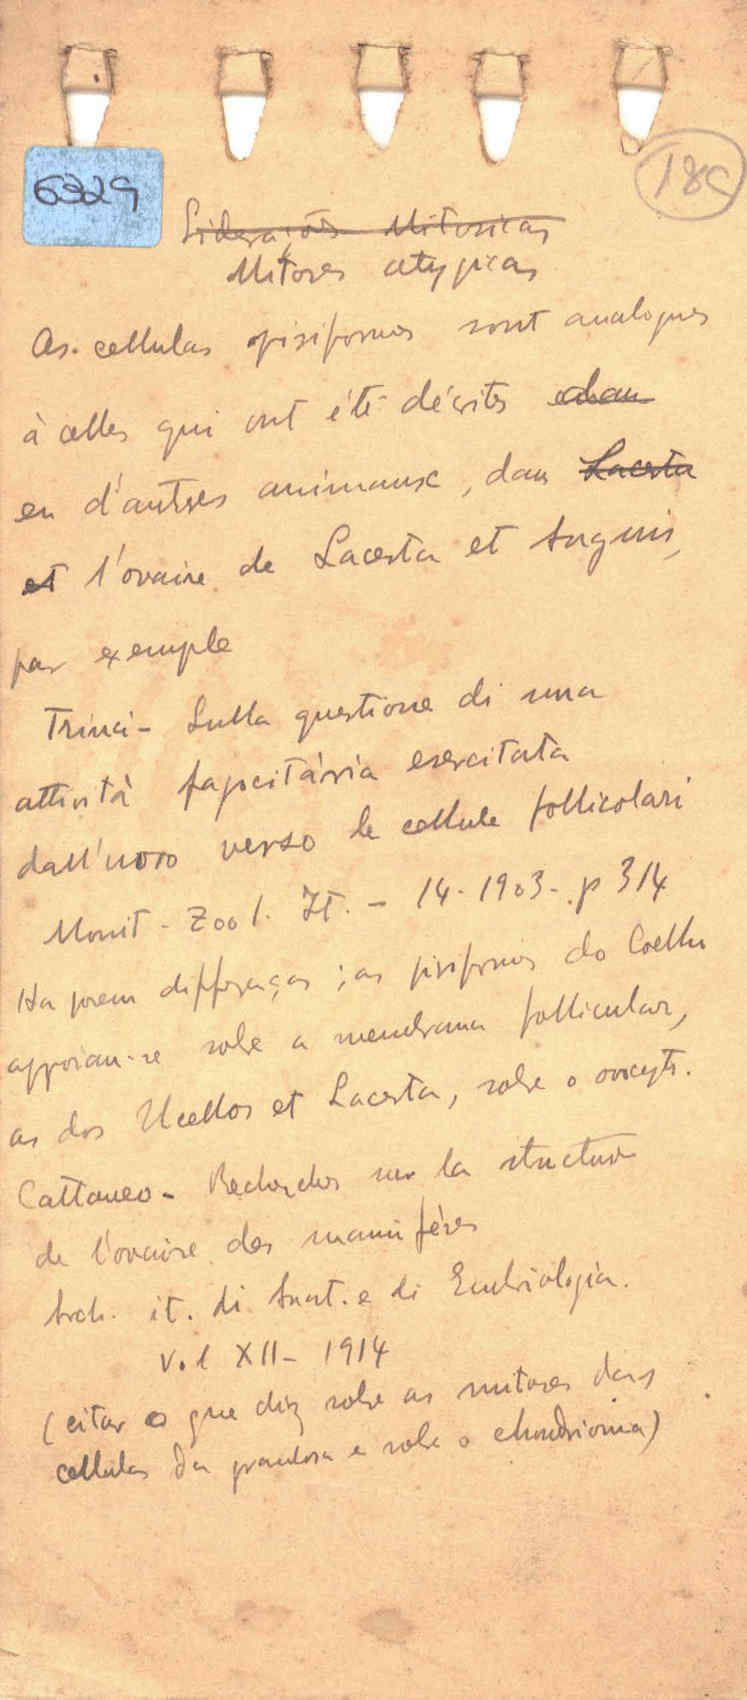 6329
18C
Mitoses atypicas
As cellulas pisiformes sont analogues
à celles qui ont été décrites dan
en d'autres animaux, dans Lacerta
et l'ovaire de Lacerta et Anguis,
par exemple
Trinci - Sulla questione di una
attività fagocitária esercitata
dall'uovo verso le cellule follicolari
Monit. Zool. It. - 14 - 1903 - p 314
Ha porem differenças; as pisiformes do Coelho
appoiam-se sobre a membrana follicular,
as dos Ucellos et Lacerta, sobre o ovocyto.
Cattaneo - Recherches sur la structure
de l'ovaire des mammifères
Arch. it. di Anat. e di Embriologia.
vol XII - 1914
(citar o que diz sobre as mitoses das
cellulas da granulosa e sobre o chondrioma)